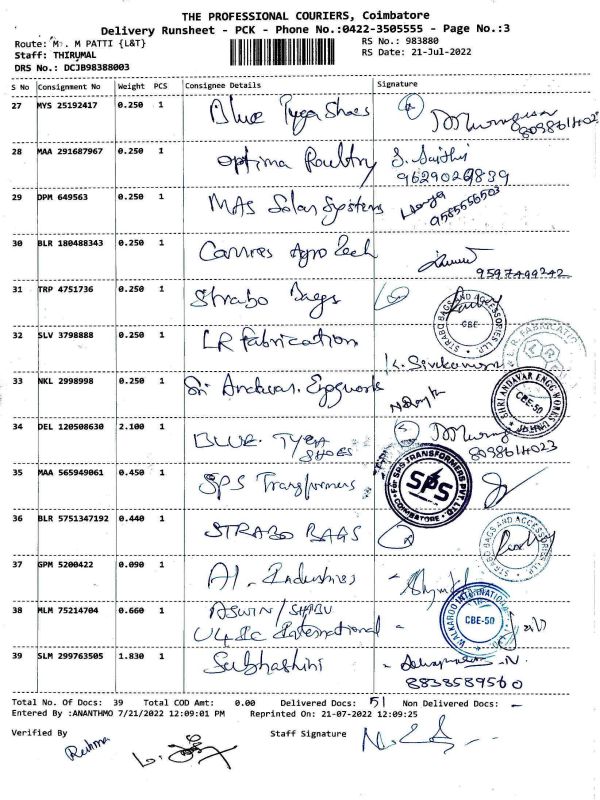 THE PROFESSIONAL COURIERS, Coimbatore
Delivery Runsheet - PCK - Phone No.:0422-3505555 - Page No.:3
Route: M. M PATTI {L&T} RS No.: 983880
Staff: THIRUMAL RS Date: 21-Jul-2022
DRS No.: DCJB98388003
S No Consignment No Weight PCS Consignee Details Signature
27 MYS 25192417 0.250 1 Blue Tyga Shoes
8098614023
28 MAA 291687967 0.250 1 Optima Poultry S. Saithi
9629029839
29 DPM 649563 0.250 1 MAS Solar Systems
9585556503
30 BLR 180488343 0.250 1 Agro Tech
9597499242
31 TRP 4751736 0.250 1 Strabo Bags
STRABO BAGS AND ACCESSORIES LLP CBE
32 SLV 3798888 0.250 1 LR Fabrication K. Sivakumar
L.R. FABRICATIO
33 NKL 2998998 0.250 1 Sri Andavar. Enggworks
SHRI ANDAVAR ENGG WORKS CBE-50
34 DEL 120508630 2.100 1 BLUE. TYGA
SHOES 8098614023
35 MAA 565949061 0.450 1 SPS Transformers
For SPS TRANSFORMERS PVT LTD. SPS COIMBATORE
36 BLR 5751347192 0.440 1 STRABO BAGS
STRABO BAGS AND ACCESSORIES LLP
37 GPM 5200422 0.090 1 A1. Industries
38 MLM 75214704 0.660 1 ASWIN / SHABU
International
WALKAROO INTERNATIONAL CBE-50
39 SLM 299763505 1.830 1 Subhashini
8838589560
Total No. Of Docs: 39 Total COD Amt: 0.00 Delivered Docs: 51 Non Delivered Docs: -
Entered By :ANANTHMO 7/21/2022 12:09:01 PM Reprinted On: 21-07-2022 12:09:25
Verified By Staff Signature